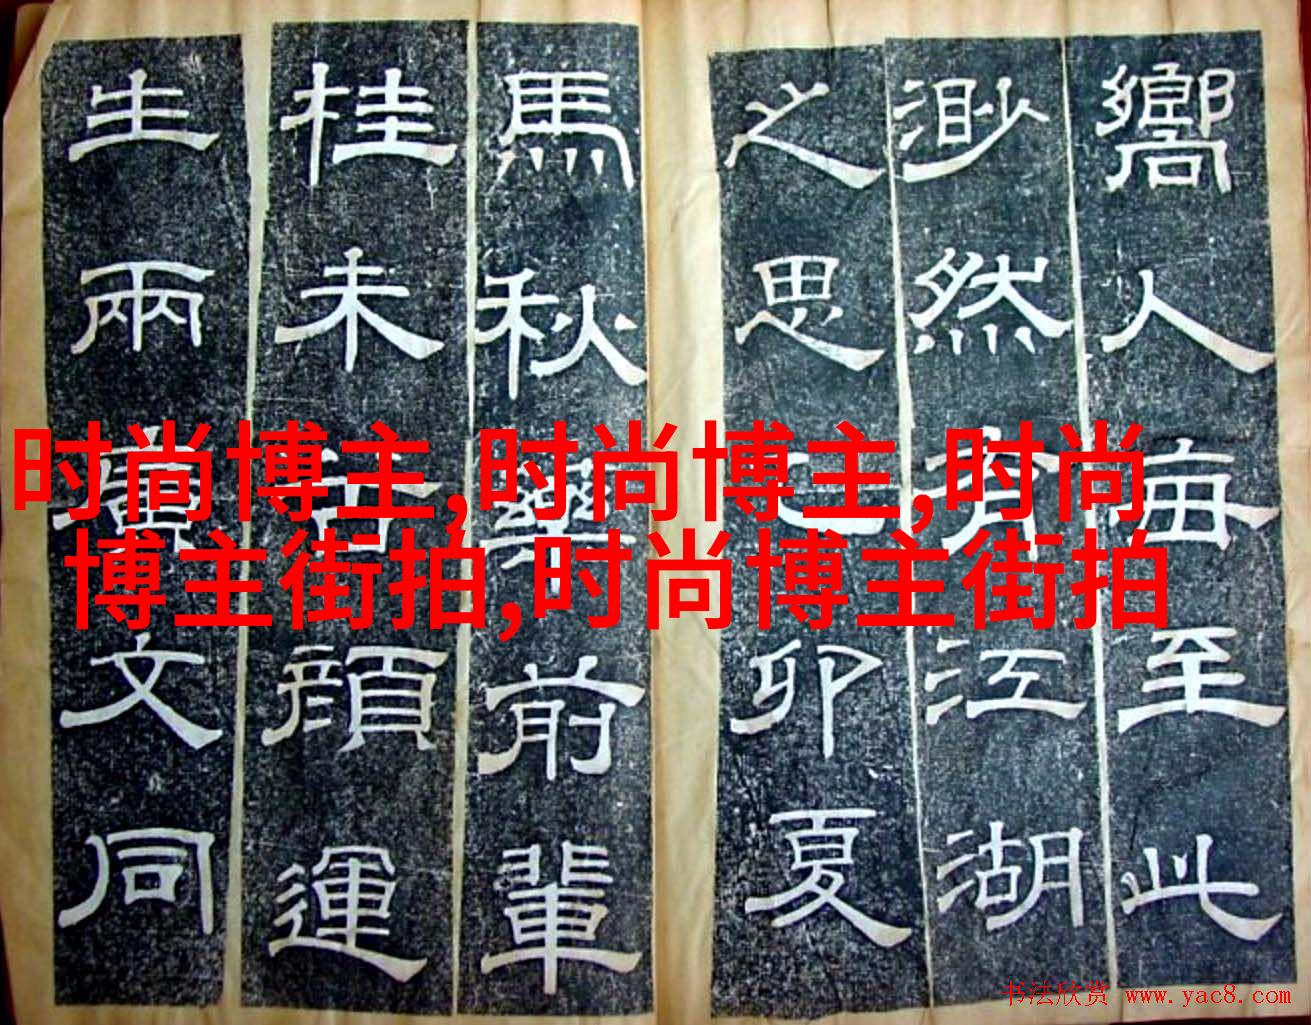 嚮人每至此
渺然有江湖
之思卯夏
馬秋藥前輩
桂未谷顏運
生兩廣文同
时尚博主,时尚博主,时尚
博主街拍,时尚博主街拍
书法欣赏 www.yac8.com